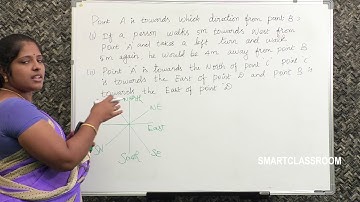 Point A is towards which direction from point B?
(i) If a person walks 8m towards West from
point A and takes a left turn and walk
8m again, he would be 4m away from point B
(ii) Point A is towards the North of point C. point C
is towards the East of point D and point B is
towards the East of point D
North
NE
East
SE
South
SW
SMARTCLASSROOM